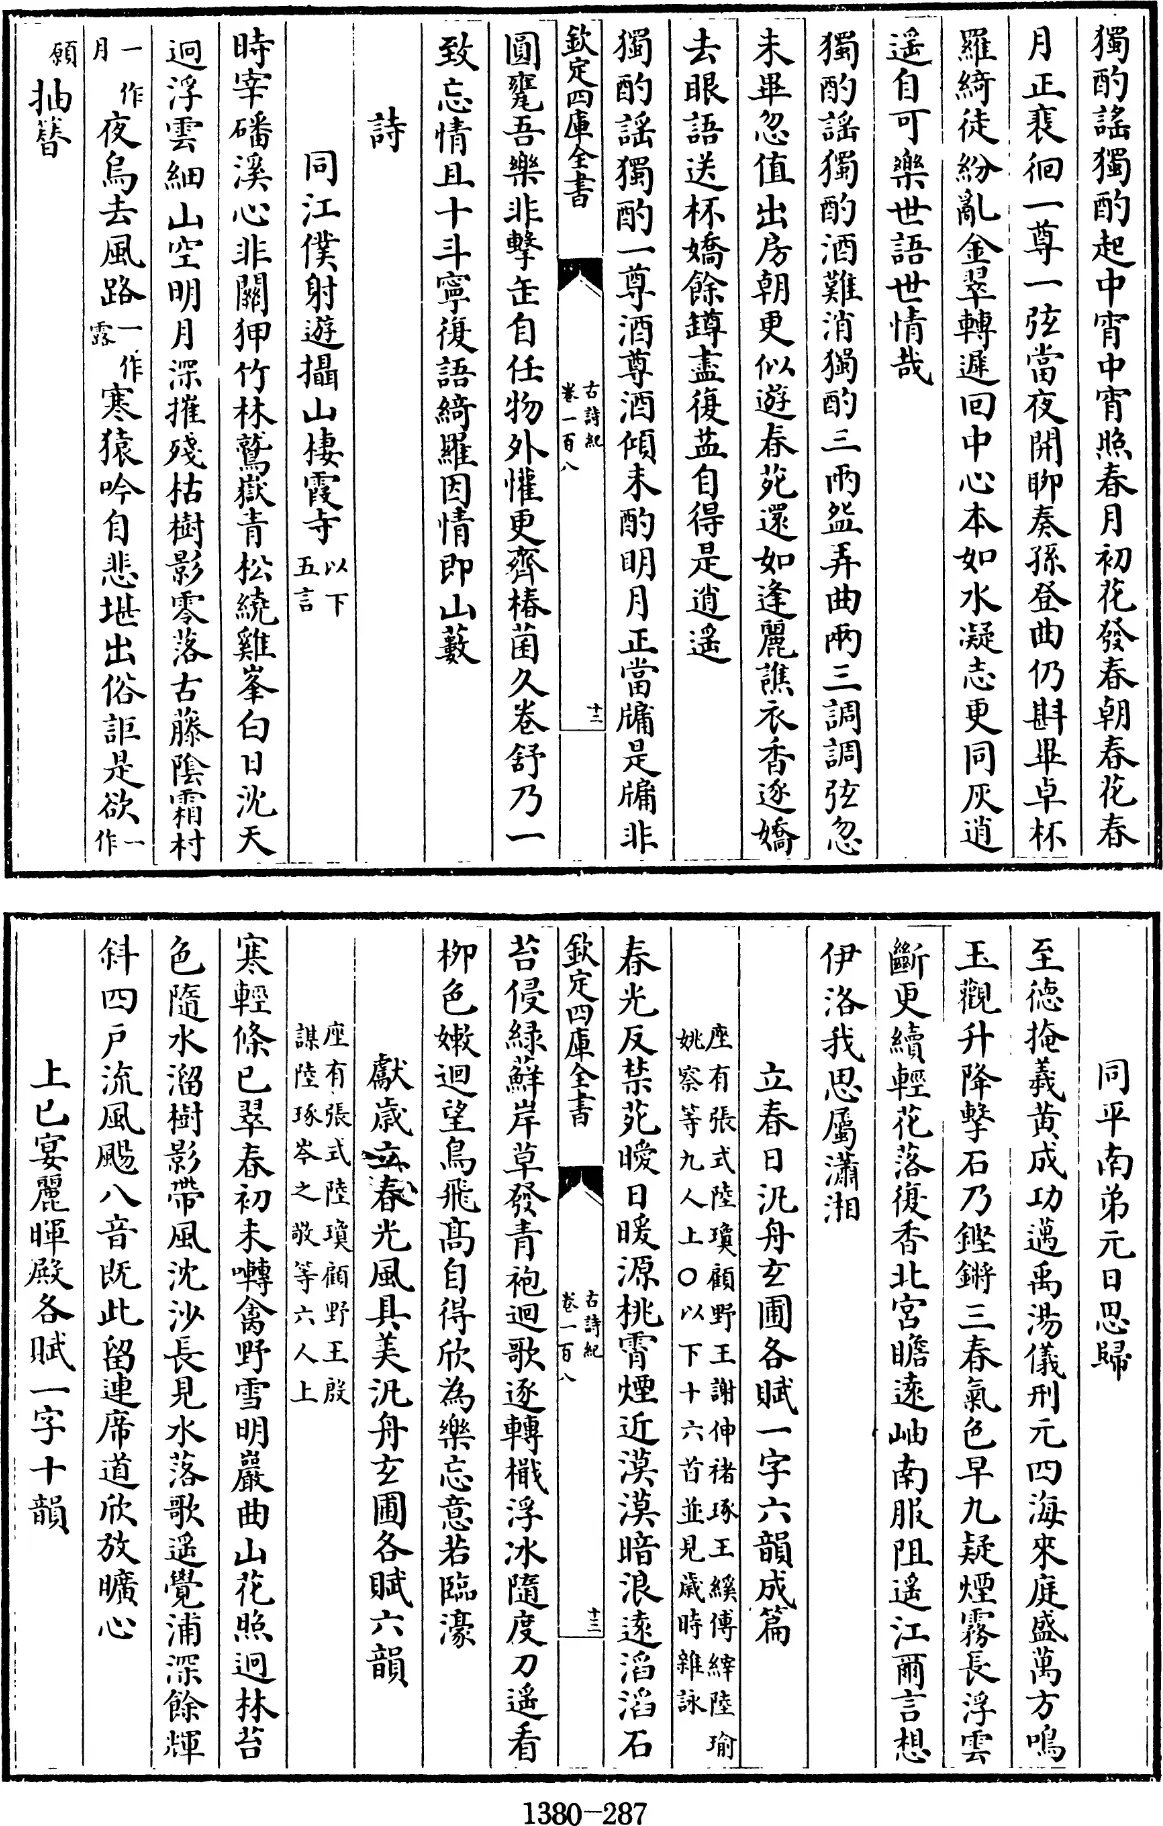 獨酌謠獨酌起中宵中宵照春月初花發春朝春花春
月正裴徊一尊一弦當夜開聊奏孫登曲仍斟畢卓杯
羅綺徒紛亂金翠轉遲回中心本如水凝志更同灰逍
遥自可樂世語世情哉
獨酌謠獨酌酒難消獨酌三兩盌弄曲兩三調調弦忽
未畢忽值出房朝更似遊春苑還如逢麗譙衣香逐嬌
去眼語送杯嬌餘罇盡復益自得是逍遥
獨酌謠獨酌一尊酒尊酒傾未酌明月正當牗是牗非
欽定四庫全書
古詩紀
卷一百八
十二
圓甕吾樂非擊缶自任物外懽更齊椿菌久卷舒乃一
致忘情且十斗寧復語綺羅因情即山藪
詩
同江僕射遊攝山棲霞寺以下五言
時宰磻溪心非關狎竹林鷲嶽青松繞雞峯白日沈天
迥浮雲細山空明月深摧殘枯樹影零落古藤陰霜村
一作月夜烏去風路一作露寒猿吟自悲堪出俗詎是欲一作
願抽簪
同平南弟元日思歸
至德掩羲黄成功邁禹湯儀刑元四海來庭盛萬方鳴
玉觀升降擊石乃鏗鏘三春氣色早九疑煙霧長浮雲
斷更續輕花落復香北宮瞻遠岫南服阻遥江爾言想
伊洛我思屬瀟湘
立春日汎舟玄圃各賦一字六韻成篇
座有張式陸瓊顧野王謝伸褚琢王縘傅縡陸瑜
姚察等九人上○以下十六首並見歲時雜詠
春光反禁苑曖日暖源桃霄煙近漠漠暗浪遠滔滔石
欽定四庫全書
古詩紀
卷一百八
十三
苔侵緑蘚岸草發青袍迴歌逐轉檝浮冰隨度刀遥看
柳色嫩迴望鳥飛髙自得欣為樂忘意若臨濠
獻歳立春光風具美汎舟玄圃各賦六韻
座有張式陸瓊顧野王殷
謀陸琢岑之敬等六人上
寒輕條已翠春初未囀禽野雪明巖曲山花照迥林苔
色隨水溜樹影帶風沈沙長見水落歌遥覺浦深餘輝
斜四戸流風颺八音既此留連席道欣放曠心
上巳宴麗暉殿各賦一字十韻
1380-287